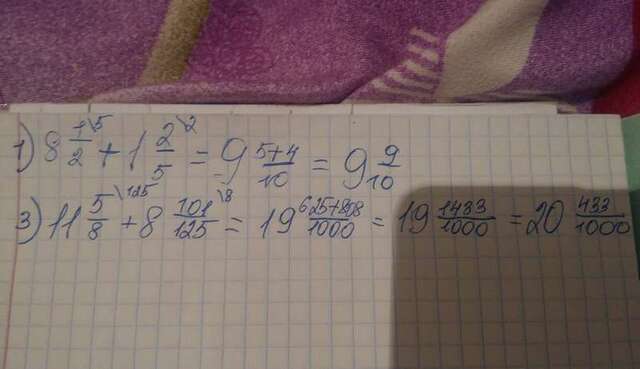 1) 8 1/2 \5 + 1 2/5 \2 = 9 5+4/10 = 9 9/10
3) 11 5/8 \125 + 8 101/125 \8 = 19 625+808/1000 = 19 1433/1000 = 20 433/1000